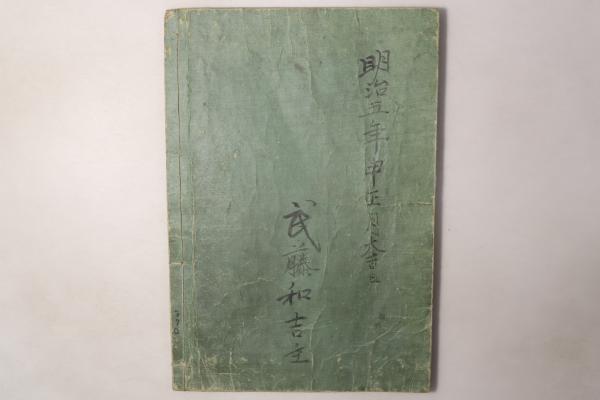 明治五年申正月大吉日
武藤和吉主